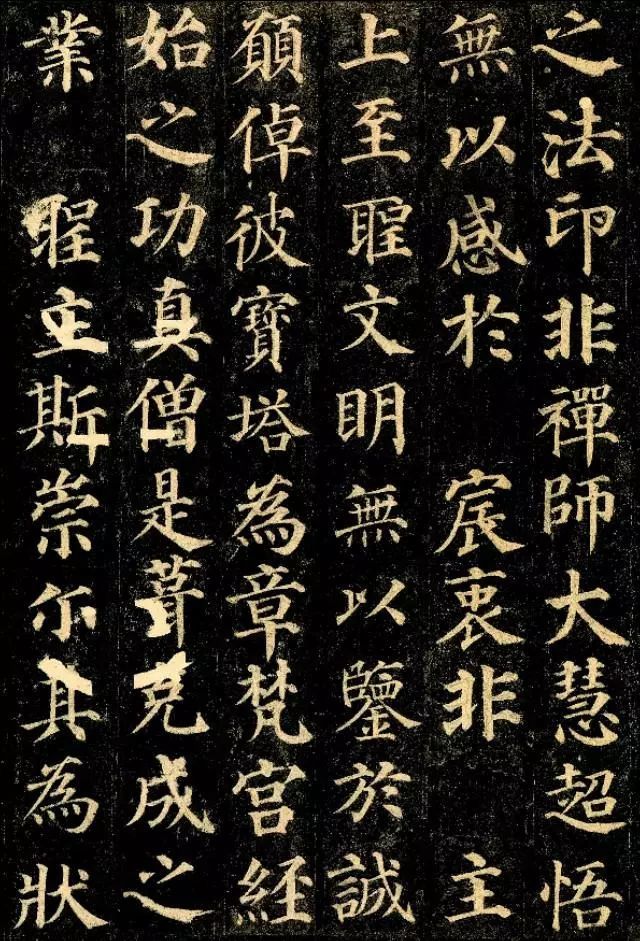 之法印非禪師大慧超悟
無以感於宸衷非主
上至聖文明無以鑒於誠
願倬彼寶塔為章梵宮經
始之功真僧是葺克成之
業聖主斯崇尓其為狀